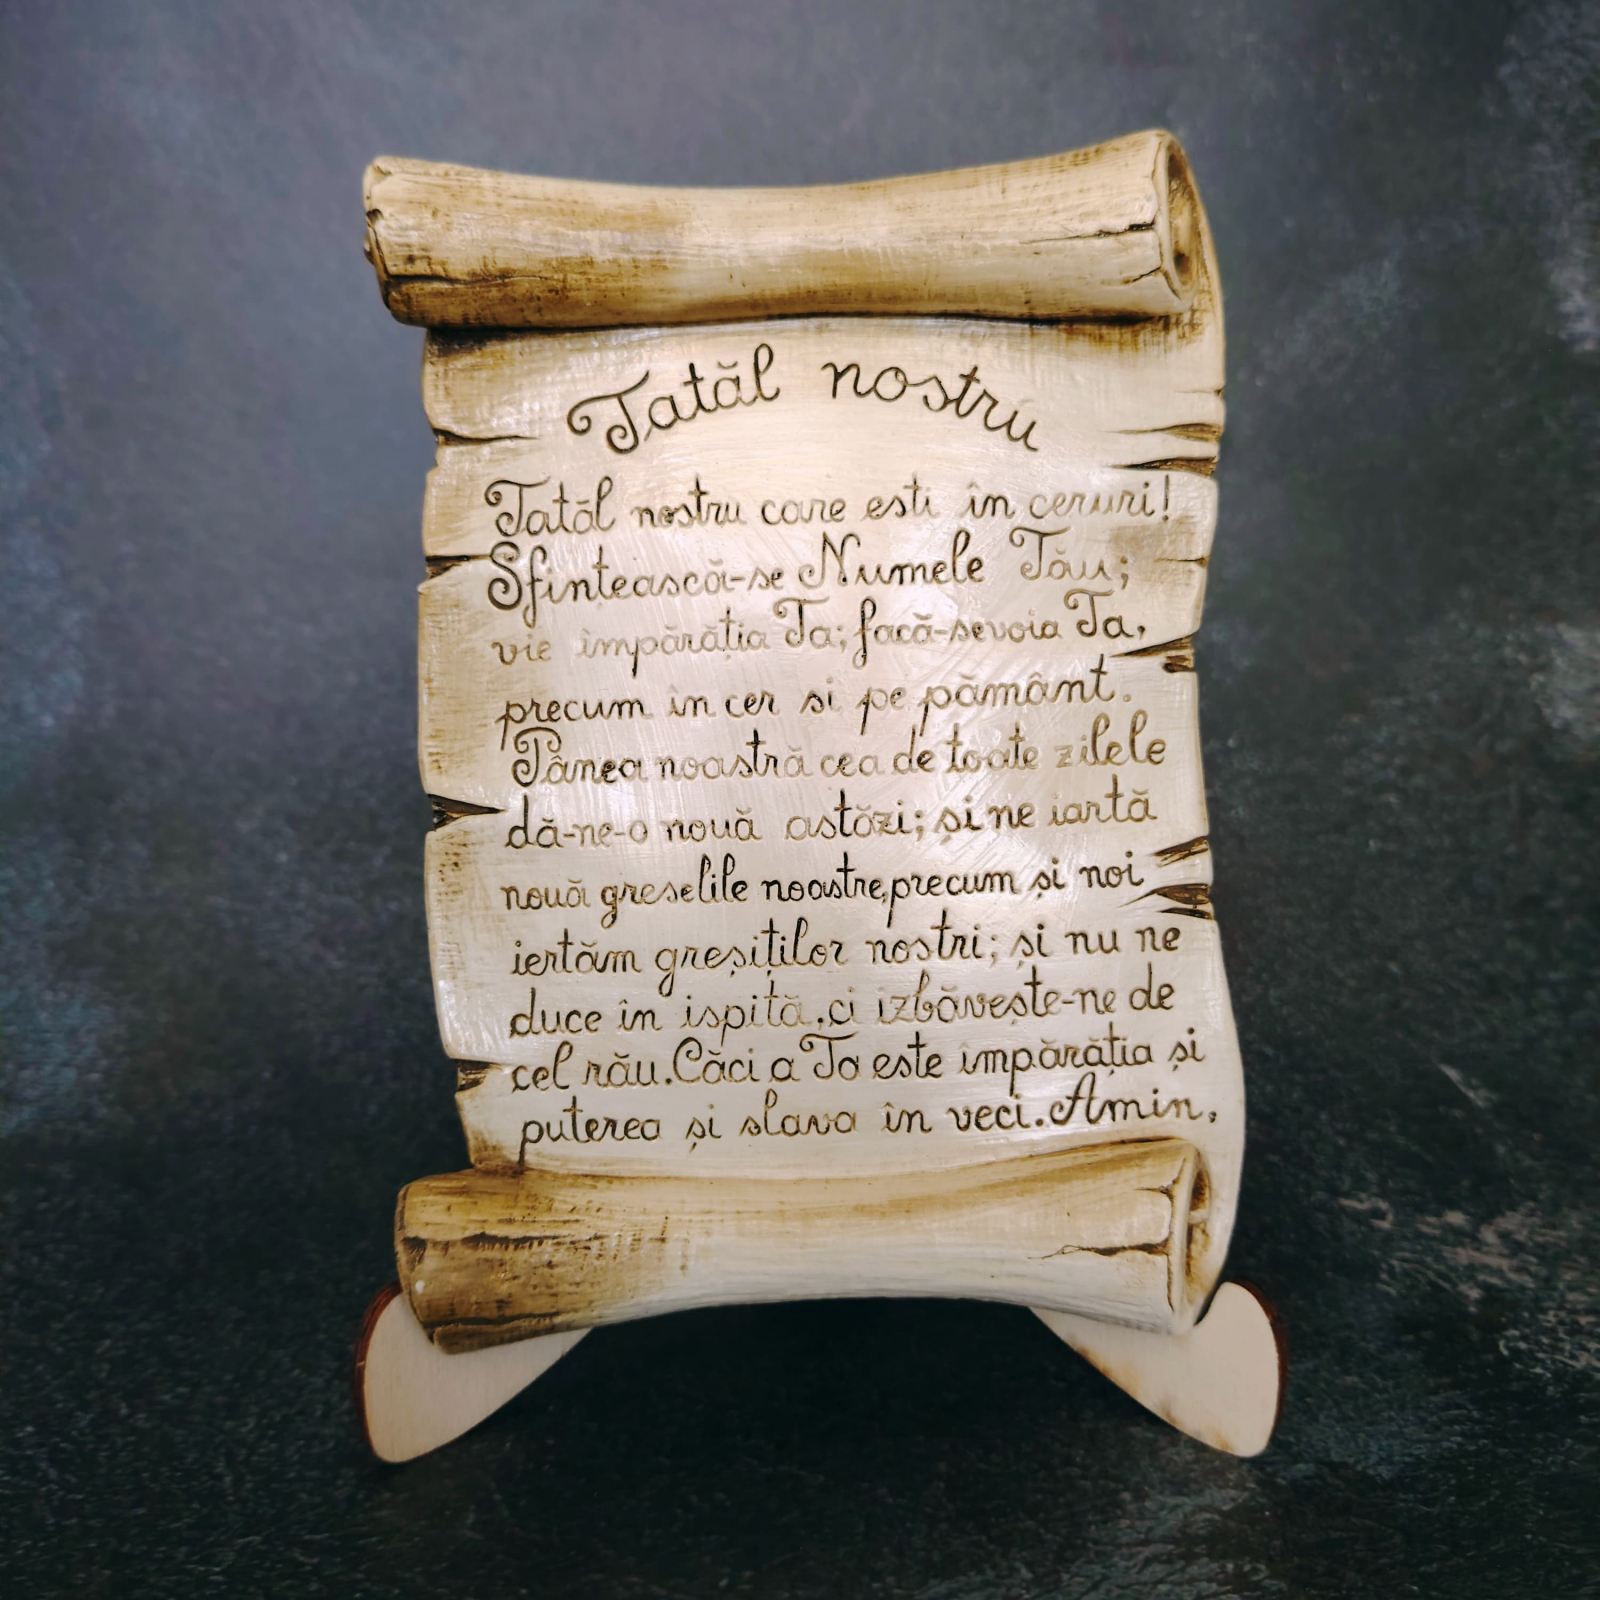 Tatăl nostru
Tatăl nostru care esti în ceruri!
Sfințească-se Numele Tău;
vie împărăția Ta; facă-sevoia Ta,
precum în cer si pe pământ.
Pânea noastră cea de toate zilele
dă-ne-o nouă astăzi; și ne iartă
nouă greselile noastre,precum și noi
iertăm greșiților nostri; și nu ne
duce în ispită, ci izbăvește-ne de
cel rău. Căci a Ta este împărăția și
puterea și slava în veci. Amin.